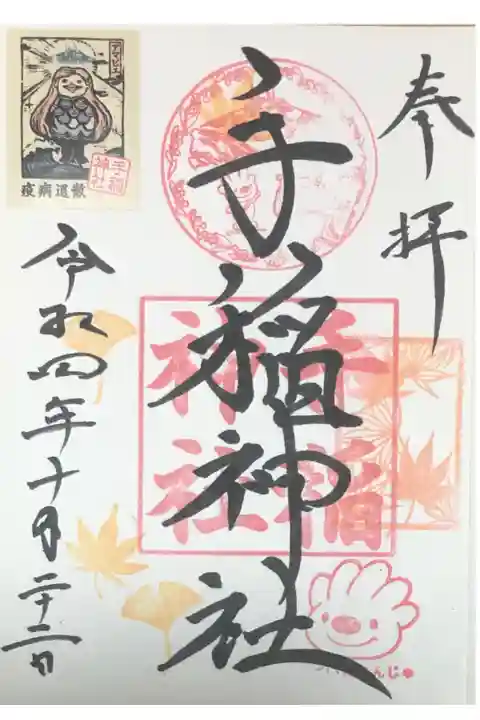 奉拝
手稲神社
手稲
神社
令和四年十月二十二日
アマビエ
手稲
神社
疫病退散